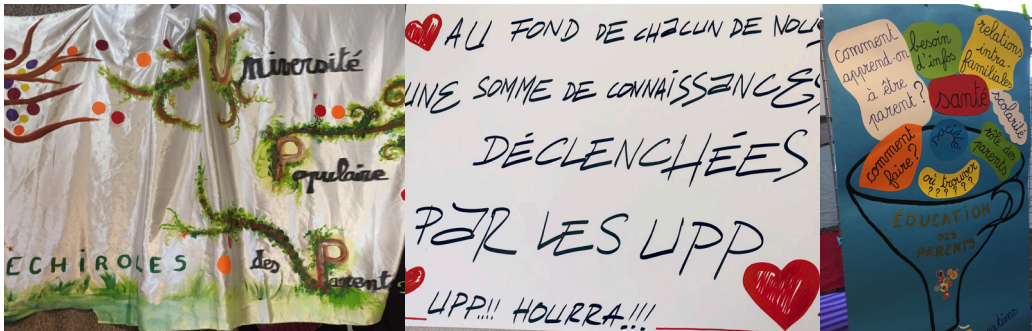 Université
Populaire
ECHIROLES
des
Parents
AU FOND DE CHACUN DE NOUS
UNE SOMME DE CONNAISSANCES
DÉCLENCHÉES
PAR LES UPP
UPP!!! HOURRA!!!
comment
apprend-on
à être
parent?
besoin
d'infos
relations
intra-
familiales
santé
scolarité
société
rôle des
parents
comment
faire?
où trouver
??????
ÉDUCATION
DES
PARENTS